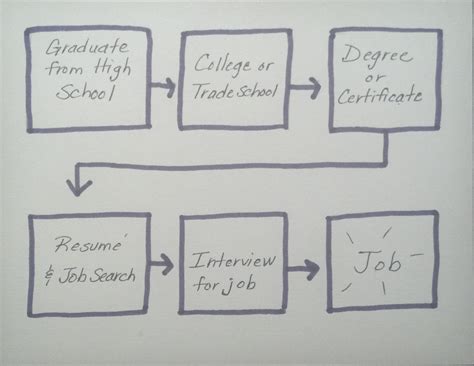 Graduate
from High
School
College or
Trade School
Degree
or
Certificate
Resumé
& Job Search
Interview
for job
Job